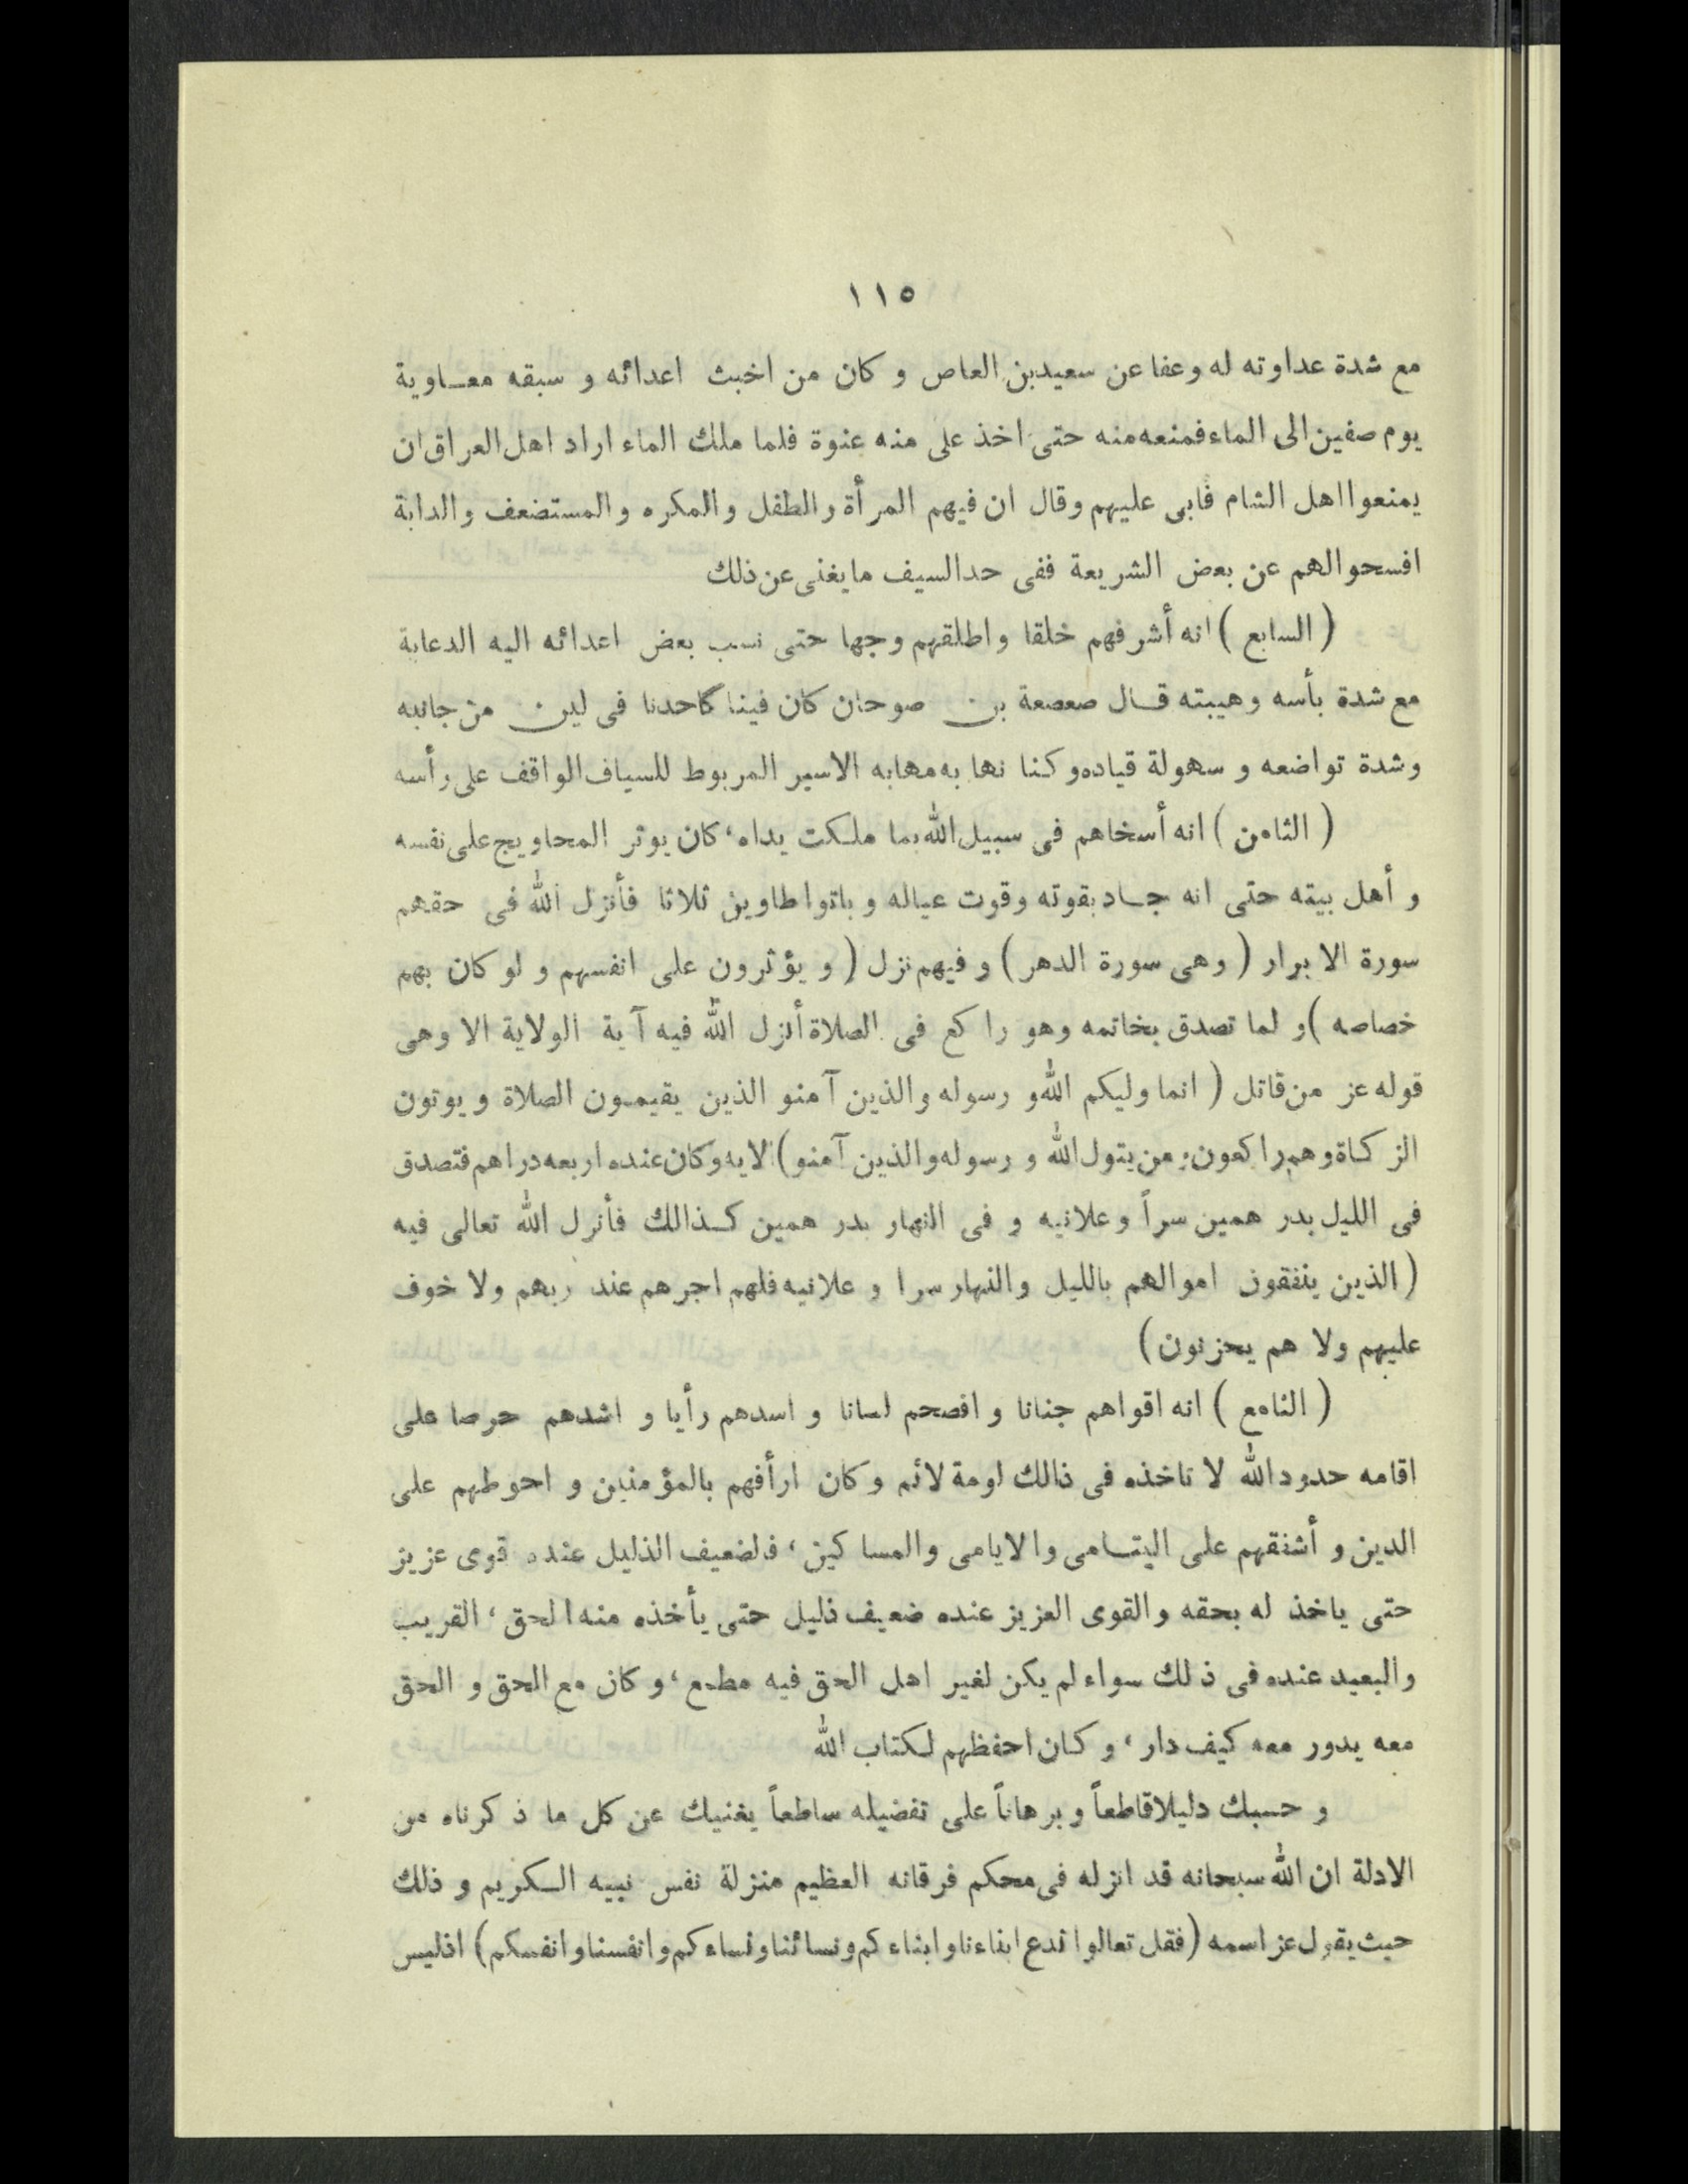 ١١٥
مع شدة عداوته له وعفا عن سعيدبن العاص و كان من اخبث اعدائه و سبقه معـاوية
يوم صفين الى الماء فمنعه منه حتى اخذ على منه عنوة فلما ملك الماء اراد اهل العراق ان
يمنعوا اهل الشام فابى عليهم وقال ان فيهم المرأة والطفل والمكره والمستضعف والدابة
افسحوالهم عن بعض الشريعة ففى حدالسيف مايغنى عن ذلك
( السابع ) انه أشرفهم خلقا واطلقهم وجها حتى نسب بعض اعدائه اليه الدعابة
مع شدة بأسه وهيبته قـال صعصعة بن صوحان كان فينا كاحدنا فى لين من جانبه
وشدة تواضعه و سهولة قياده وكنا نها به مهابه الاسير المربوط للسياف الواقف على رأسه
( الثامن ) انه أسخاهم فى سبيل الله بما ملكت يداه، كان يوثر المحاويج على نفسه
و أهل بيته حتى انه جـاد بقوته وقوت عياله و باتوا طاوين ثلاثا فأنزل الله فى حقهم
سورة الابرار ( وهى سورة الدهر ) و فيهم نزل ( و يؤثرون على انفسهم و لو كان بهم
خصاصه ) و لما تصدق بخاتمه وهو راكع فى الصلاة أنزل الله فيه آية الولاية الا وهى
قوله عز من قائل ( انما وليكم الله و رسوله والذين آمنو الذين يقيمـون الصلاة و يوتون
الزكاة وهم راكعون، من يتول الله و رسوله والذين آمنو ) الايه وكان عنده اربعه دراهم فتصدق
فى الليل بدر همين سراً وعلانيه و فى النهار بدر همين كـذالك فأنزل الله تعالى فيه
( الذين ينفقون اموالهم بالليل والنهار سرا و علانيه فلهم اجرهم عند ربهم ولا خوف
عليهم ولا هم يحزنون )
( التاسع ) انه اقواهم جنانا و افصحم لسانا و اسدهم رأيا و اشدهم حرصا على
اقامه حدود الله لا تاخذه فى ذالك لومة لائم وكان ارأفهم بالمؤمنين و احوطهم على
الدين و أشفقهم على اليتـامى والايامى والمساكين، فالضعيف الذليل عنده قوى عزيز
حتى ياخذ له بحقه والقوى العزيز عنده ضعيف ذليل حتى يأخذه منه الحق، القريب
والبعيد عنده فى ذلك سواء لم يكن لغير اهل الحق فيه مطمع، وكان مع الحق و الحق
معه يدور معه كيف دار، و كـان احفظهم لـكتاب الله
و حسبك دليلا قاطعاً و برهاناً على تفضيله ساطعاً يغنيك عن كل ما ذكرناه من
الادلة ان الله سبحانه قد انزله فى محكم فرقانه العظيم منزلة نفس نبيه الـكريم و ذلك
حيث يقول عز اسمه ( فقل تعالوا ندع ابناءنا وابناءكم ونسائنا ونساءكم وانفسنا وانفسكم ) افليس